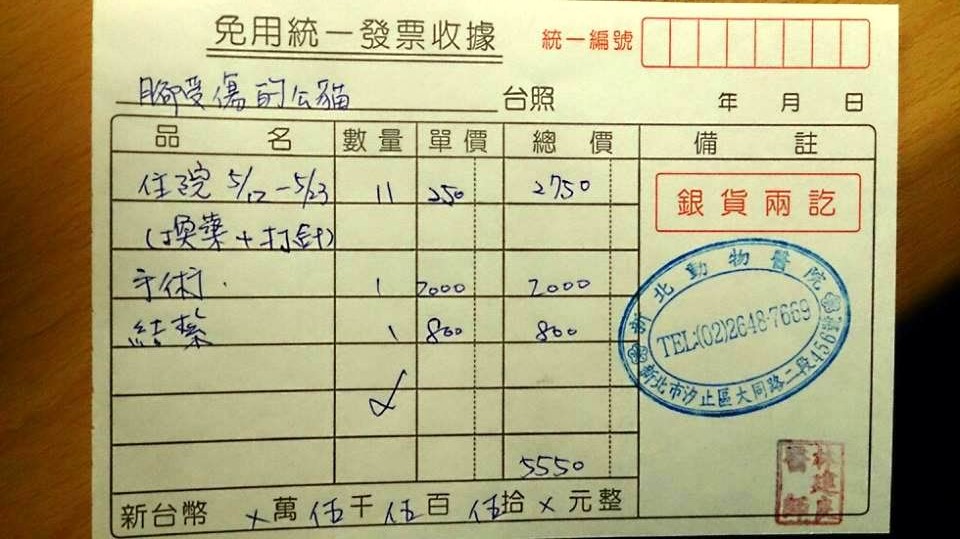 免用統一發票收據
統一編號
腳受傷的公貓 台照 年 月 日
品名 數量 單價 總價 備註
住院 5/12-5/23 11 250 2750
(換藥+打針)
手術 1 2000 2000
結紮 1 800 800
5550
新台幣 x 萬 伍 千 伍 百 伍 拾 x 元整
銀貨兩訖
新北動物醫院
TEL:(02)2648-7669
新北市汐止區大同路二段456號
林建
醫師